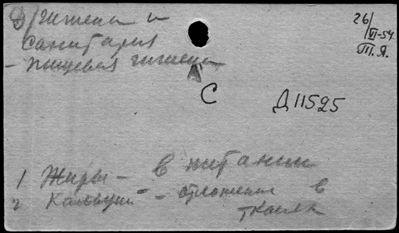 Гигиена и
Санитария
- пищевая гигиена
26/VI-54
П.Я.
С
Д11525
1 Жиры - в питании
2 Кальций - отложение в
тканях